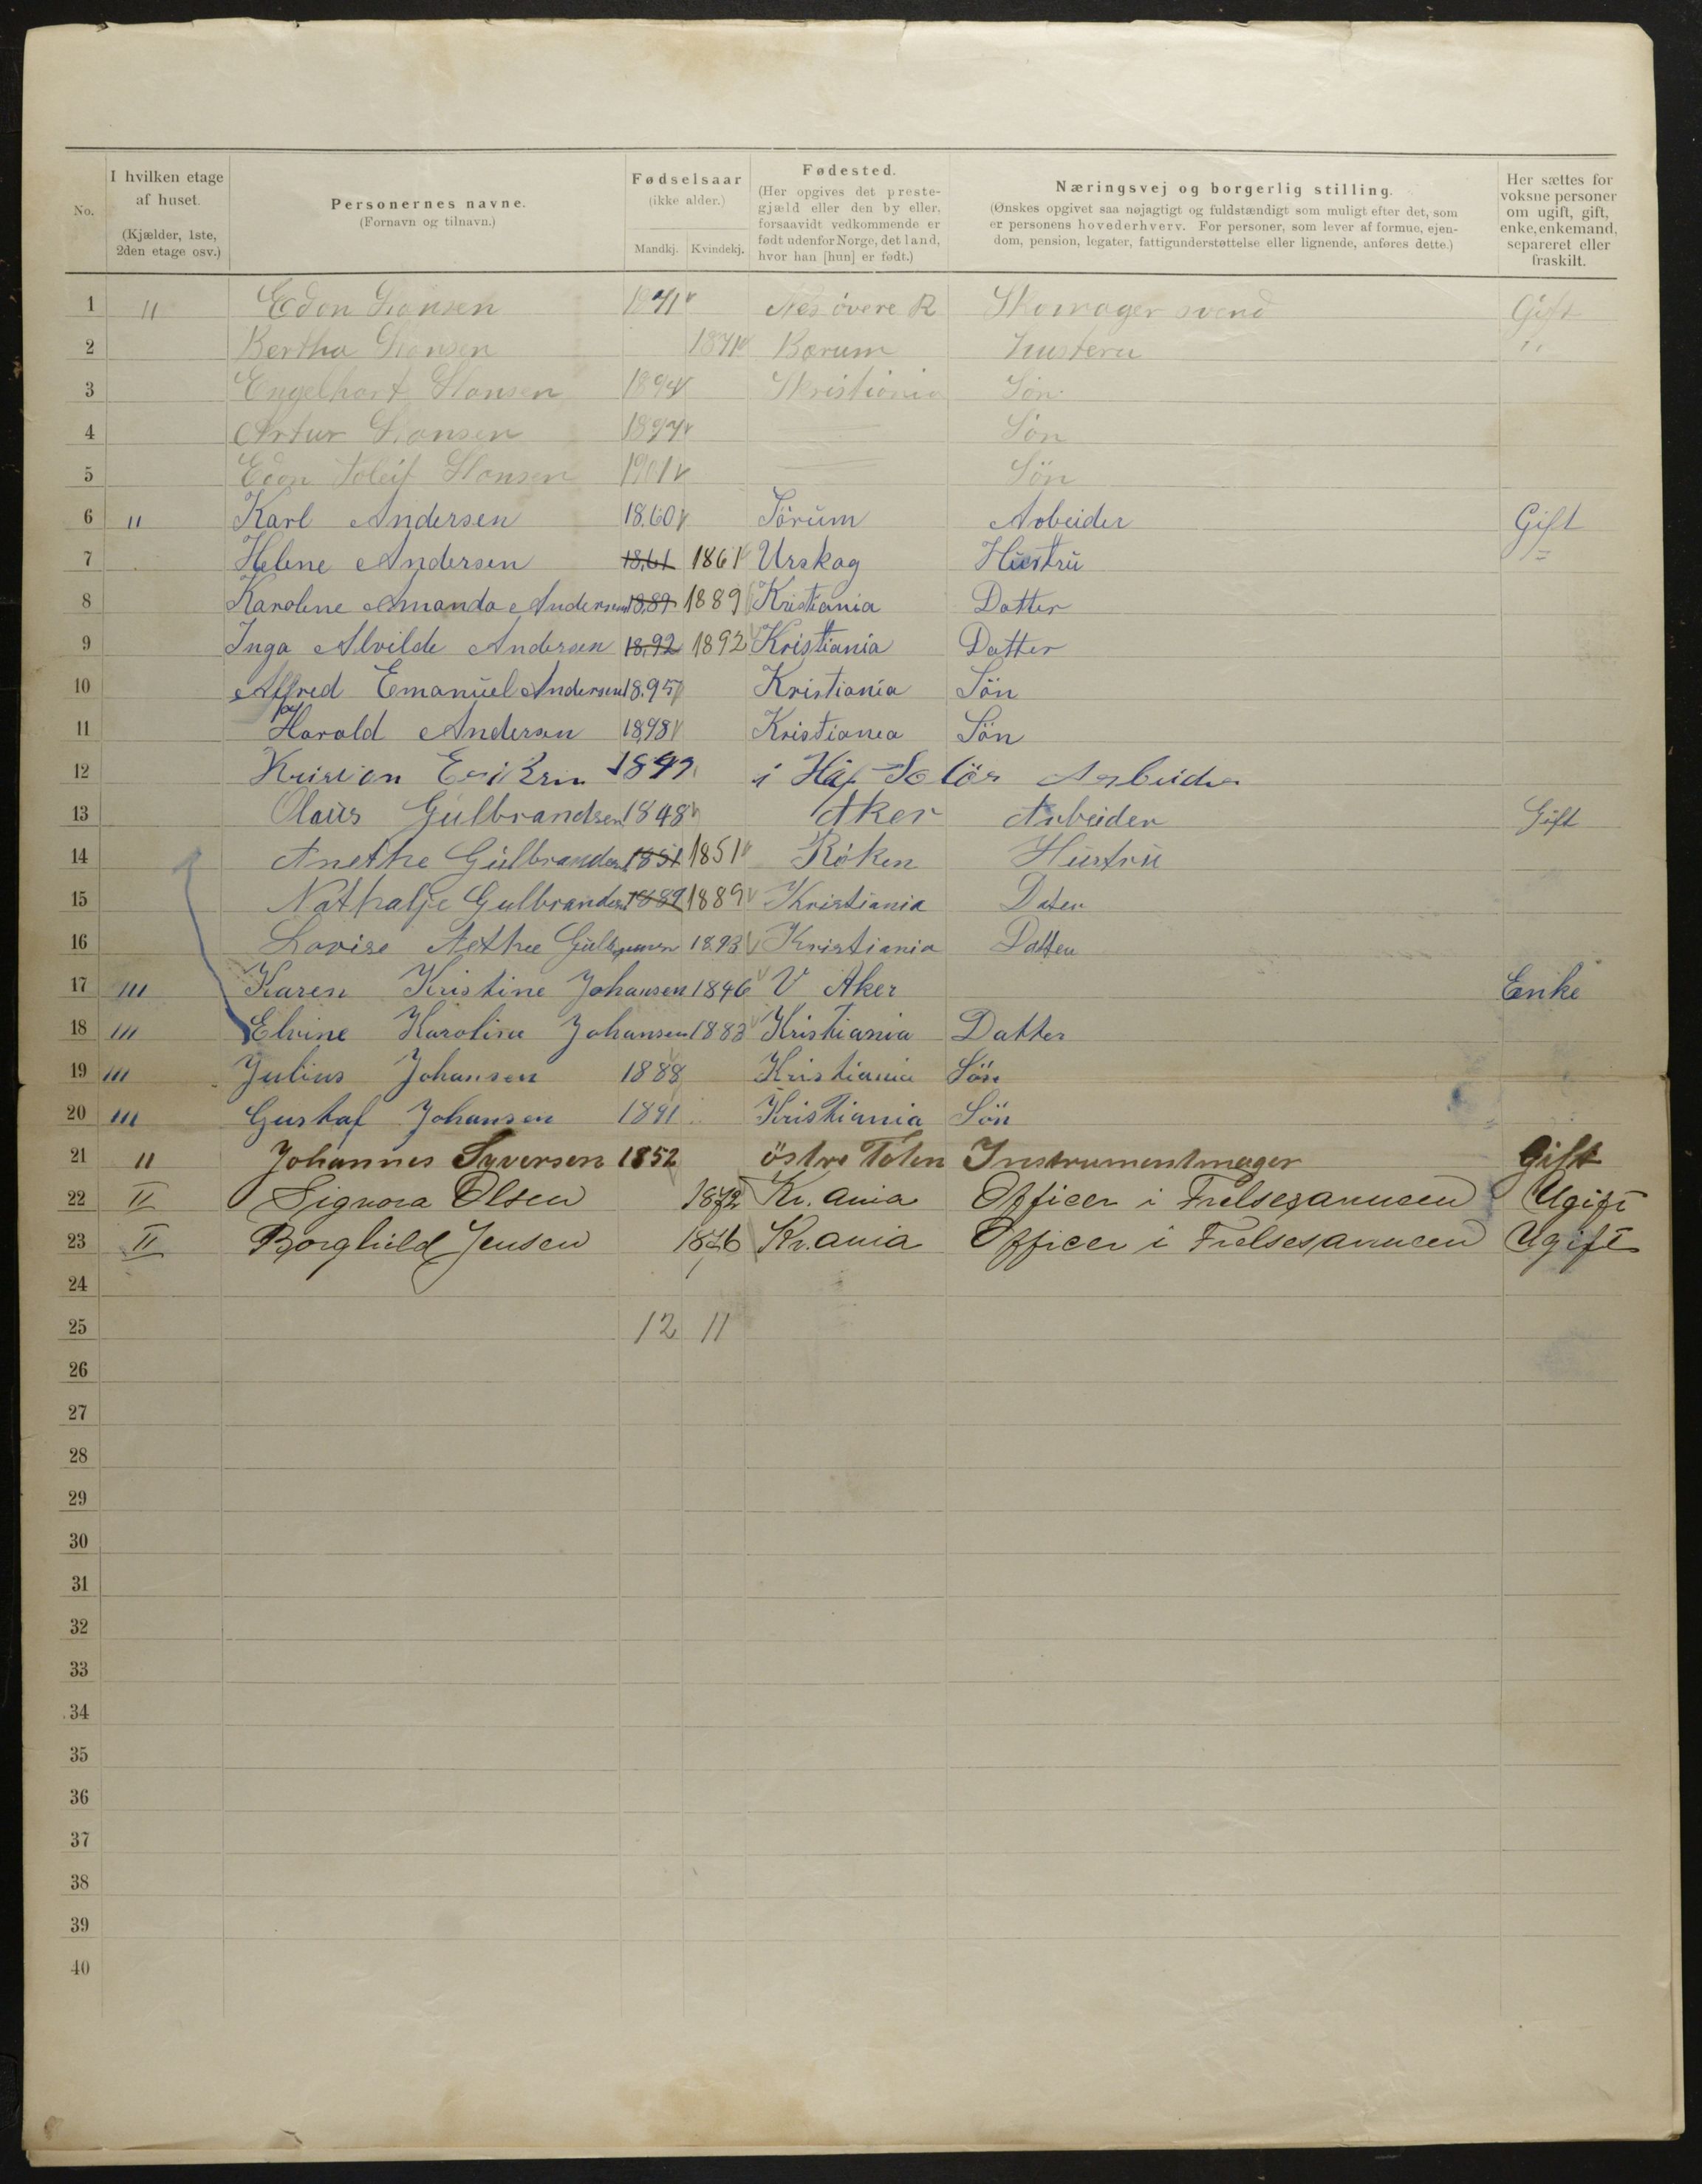 No.
I hvilken etage af huset.
(Kjælder, 1ste, 2den etage osv.)
Personernes navne.
(Fornavn og tilnavn.)
Fødselsaar
(ikke alder.)
Mandkj. Kvindekj.
Fødested.
(Her opgives det prestegjæld eller den by eller, forsaavidt vedkommende er født udenfor Norge, det land, hvor han [hun] er født.)
Næringsvej og borgerlig stilling.
(Ønskes opgivet saa nøjagtigt og fuldstændigt som muligt efter det, som er personens hovederhverv. For personer, som lever af formue, ejendom, pension, legater, fattigunderstøttelse eller lignende, anføres dette.)
Her sættes for voksne personer om ugift, gift, enke, enkemand, separeret eller fraskilt.
1 " Edon Hansen 1871 Nes övere R Skomager svend Gift
2 Bertha Hansen 1871 Barum Husteru "
3 Engelhart Hansen 1894 Kristiania Sön
4 Artur Hansen 1897 — Sön
5 Edon Hansen 1901 — Sön
6 " Karl Andersen 1860 Sörum Arbeider Gift
7 Helene Andersen 1861 1861 Urskog Hustru "
8 Karoline Amanda Andersen 1889 1889 Kristiania Datter
9 Inga Alvilde Andersen 1892 1892 Kristiania Datter
10 Alfred Emanuel Andersen 1895 Kristiania Sön
11 Harald Andersen 1898 Kristiania Sön
12 Kristian Eriksen i Solör Arbeider
13 Olaus Gulbrandsen 1848 Aker Arbeider Gift
14 Anethe Gulbrandsen 1851 1851 Röken Hustru
15 Nathalje Gulbrandsen 1889 1889 Kristiania Dater
16 Lovise Gulbransen 1893 Kristiania Datter
17 III Karen Kristine Johansen 1846 V Aker Enke
18 III Elvine Karoline Johansen 1883 Kristiania Datter
19 III Julius Johansen 1888 Kristiania Sön
20 III Gustaf Johansen 1891 Kristiania Sön
21 II Johannes Syversen 1852 östre Toten Instrumentmager Gift
22 II Signora Olsen 1872 Kr.ania Officer i Frelsesarmeen Ugift
23 II Borghild Jensen 1876 Kr.ania Officer i Frelsesarmeen Ugift
24
25 12 11
26
27
28
29
30
31
32
33
34
35
36
37
38
39
40